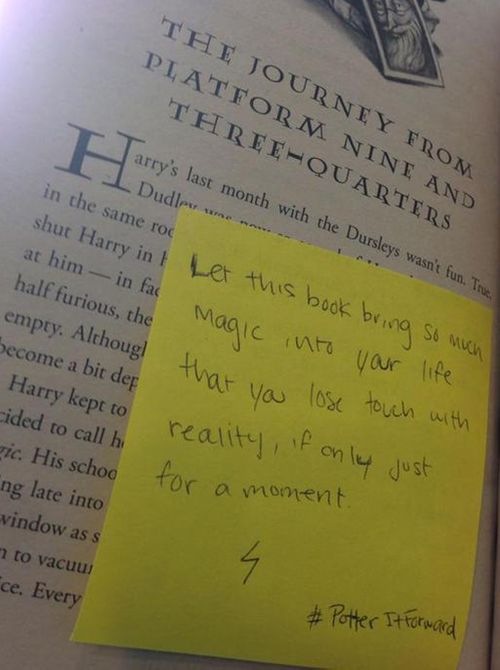 THE JOURNEY FROM
PLATFORM NINE AND
THREE-QUARTERS
Harry's last month with the Dursleys wasn't fun. True,
Dudley was now
in the same roo
shut Harry in
at him — in fac
half furious, the
empty. Although
become a bit dep
Harry kept to
cided to call h
gic. His schoo
ng late into
window as s
n to vacuu
ce. Every
Let this book bring so much
magic into your life
that you lose touch with
reality, if only just
for a moment.
# Potter It Forward